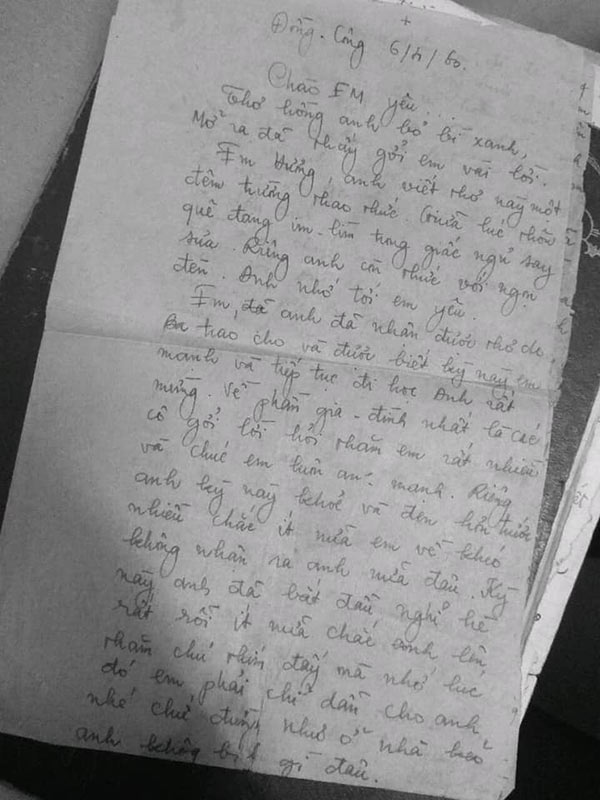 +
Đồng-Công 6/5/60.
Chào EM yêu...
Thơ hồng anh bỏ bì xanh,
Mở ra đã thấy gởi em vài lời.
Em Hương, anh viết thơ này một
đêm trường thao thức. Giữa lúc thôn
quê đang im-lìm trong giấc ngủ say
sưa. Riêng anh còn thức với ngọn
đèn. Anh nhớ tới em yêu.
Em, đã anh đã nhận được thơ do
Ba trao cho và được biết kỳ này em
mạnh và tiếp tục đi học. Anh rất
mừng. Về phần gia-đình nhất là các
cô gởi lời hỏi thăm em rất nhiều
và chúc em luôn an-mạnh. Riêng
anh kỳ này khỏe và đen hơn trước
nhiều chắc ít nữa em về khéo
không nhận ra anh nữa đâu. Kỳ
này anh đã bắt đầu nghỉ hè
rất rỗi ít nữa chắc anh lên
thăm chú thím đấy mà nhớ lúc
đó em phải chỉ dẫn cho anh
nhé chứ đừng như ở nhà
anh không biết gì đâu.